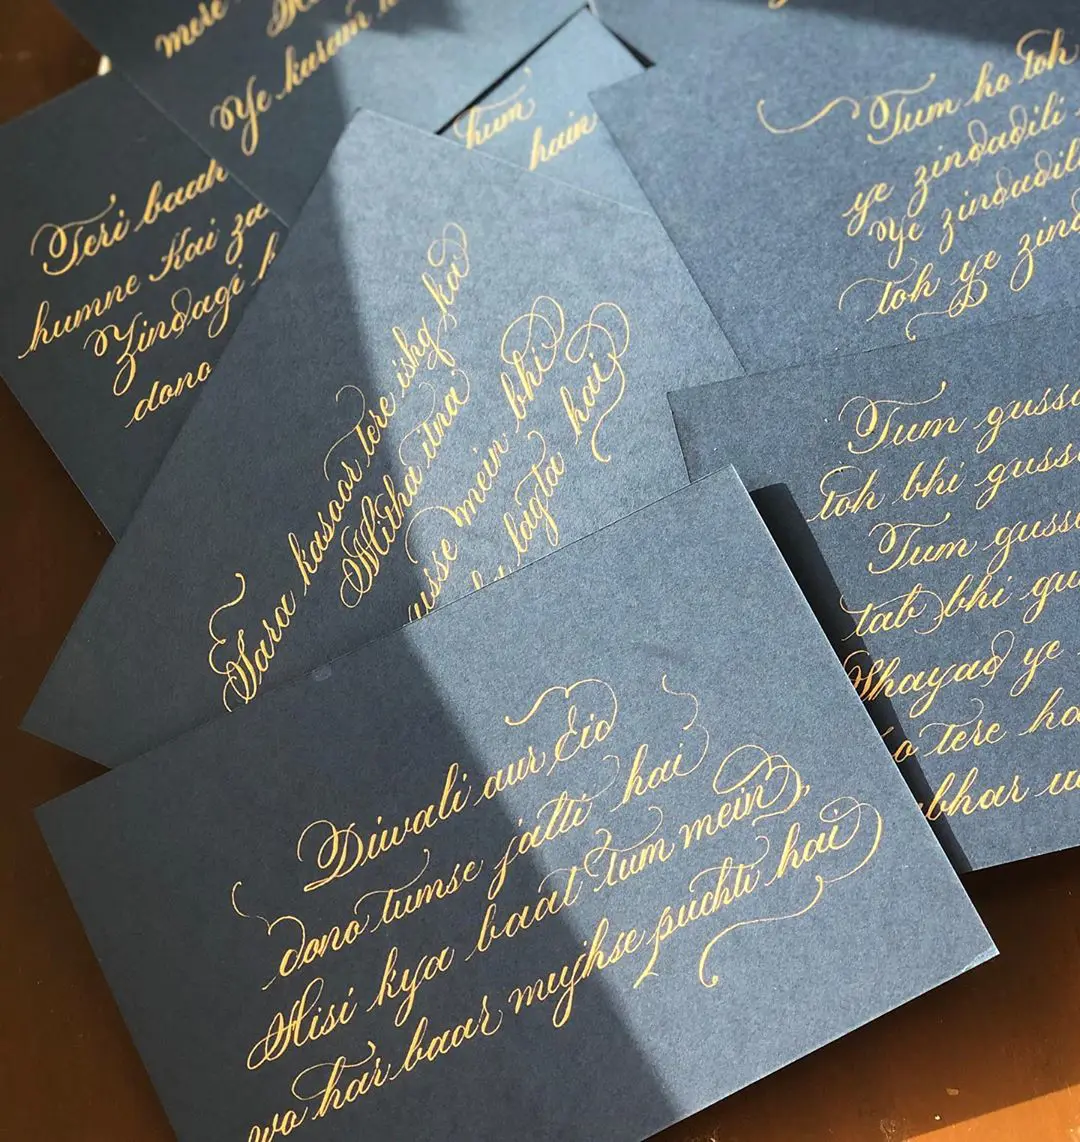 mere
Ye karam
Teri baah
humne Kai za
Zindagi
dono
hum
hain
Tum ho toh
ye zindadili
Ye zindadili
toh ye zind
Sara kasoor tere ishq ka
Mitha itna
usse mein bhi
lagta hai
Tum gusse
toh bhi gusse
Tum gusse
tab bhi gu
Shayad ye
o tere ho
bhar
Diwali aur Eid
dono tumse jalti hai
Aisi kya baat tum mein,
wo har baar mujhse puchti hai